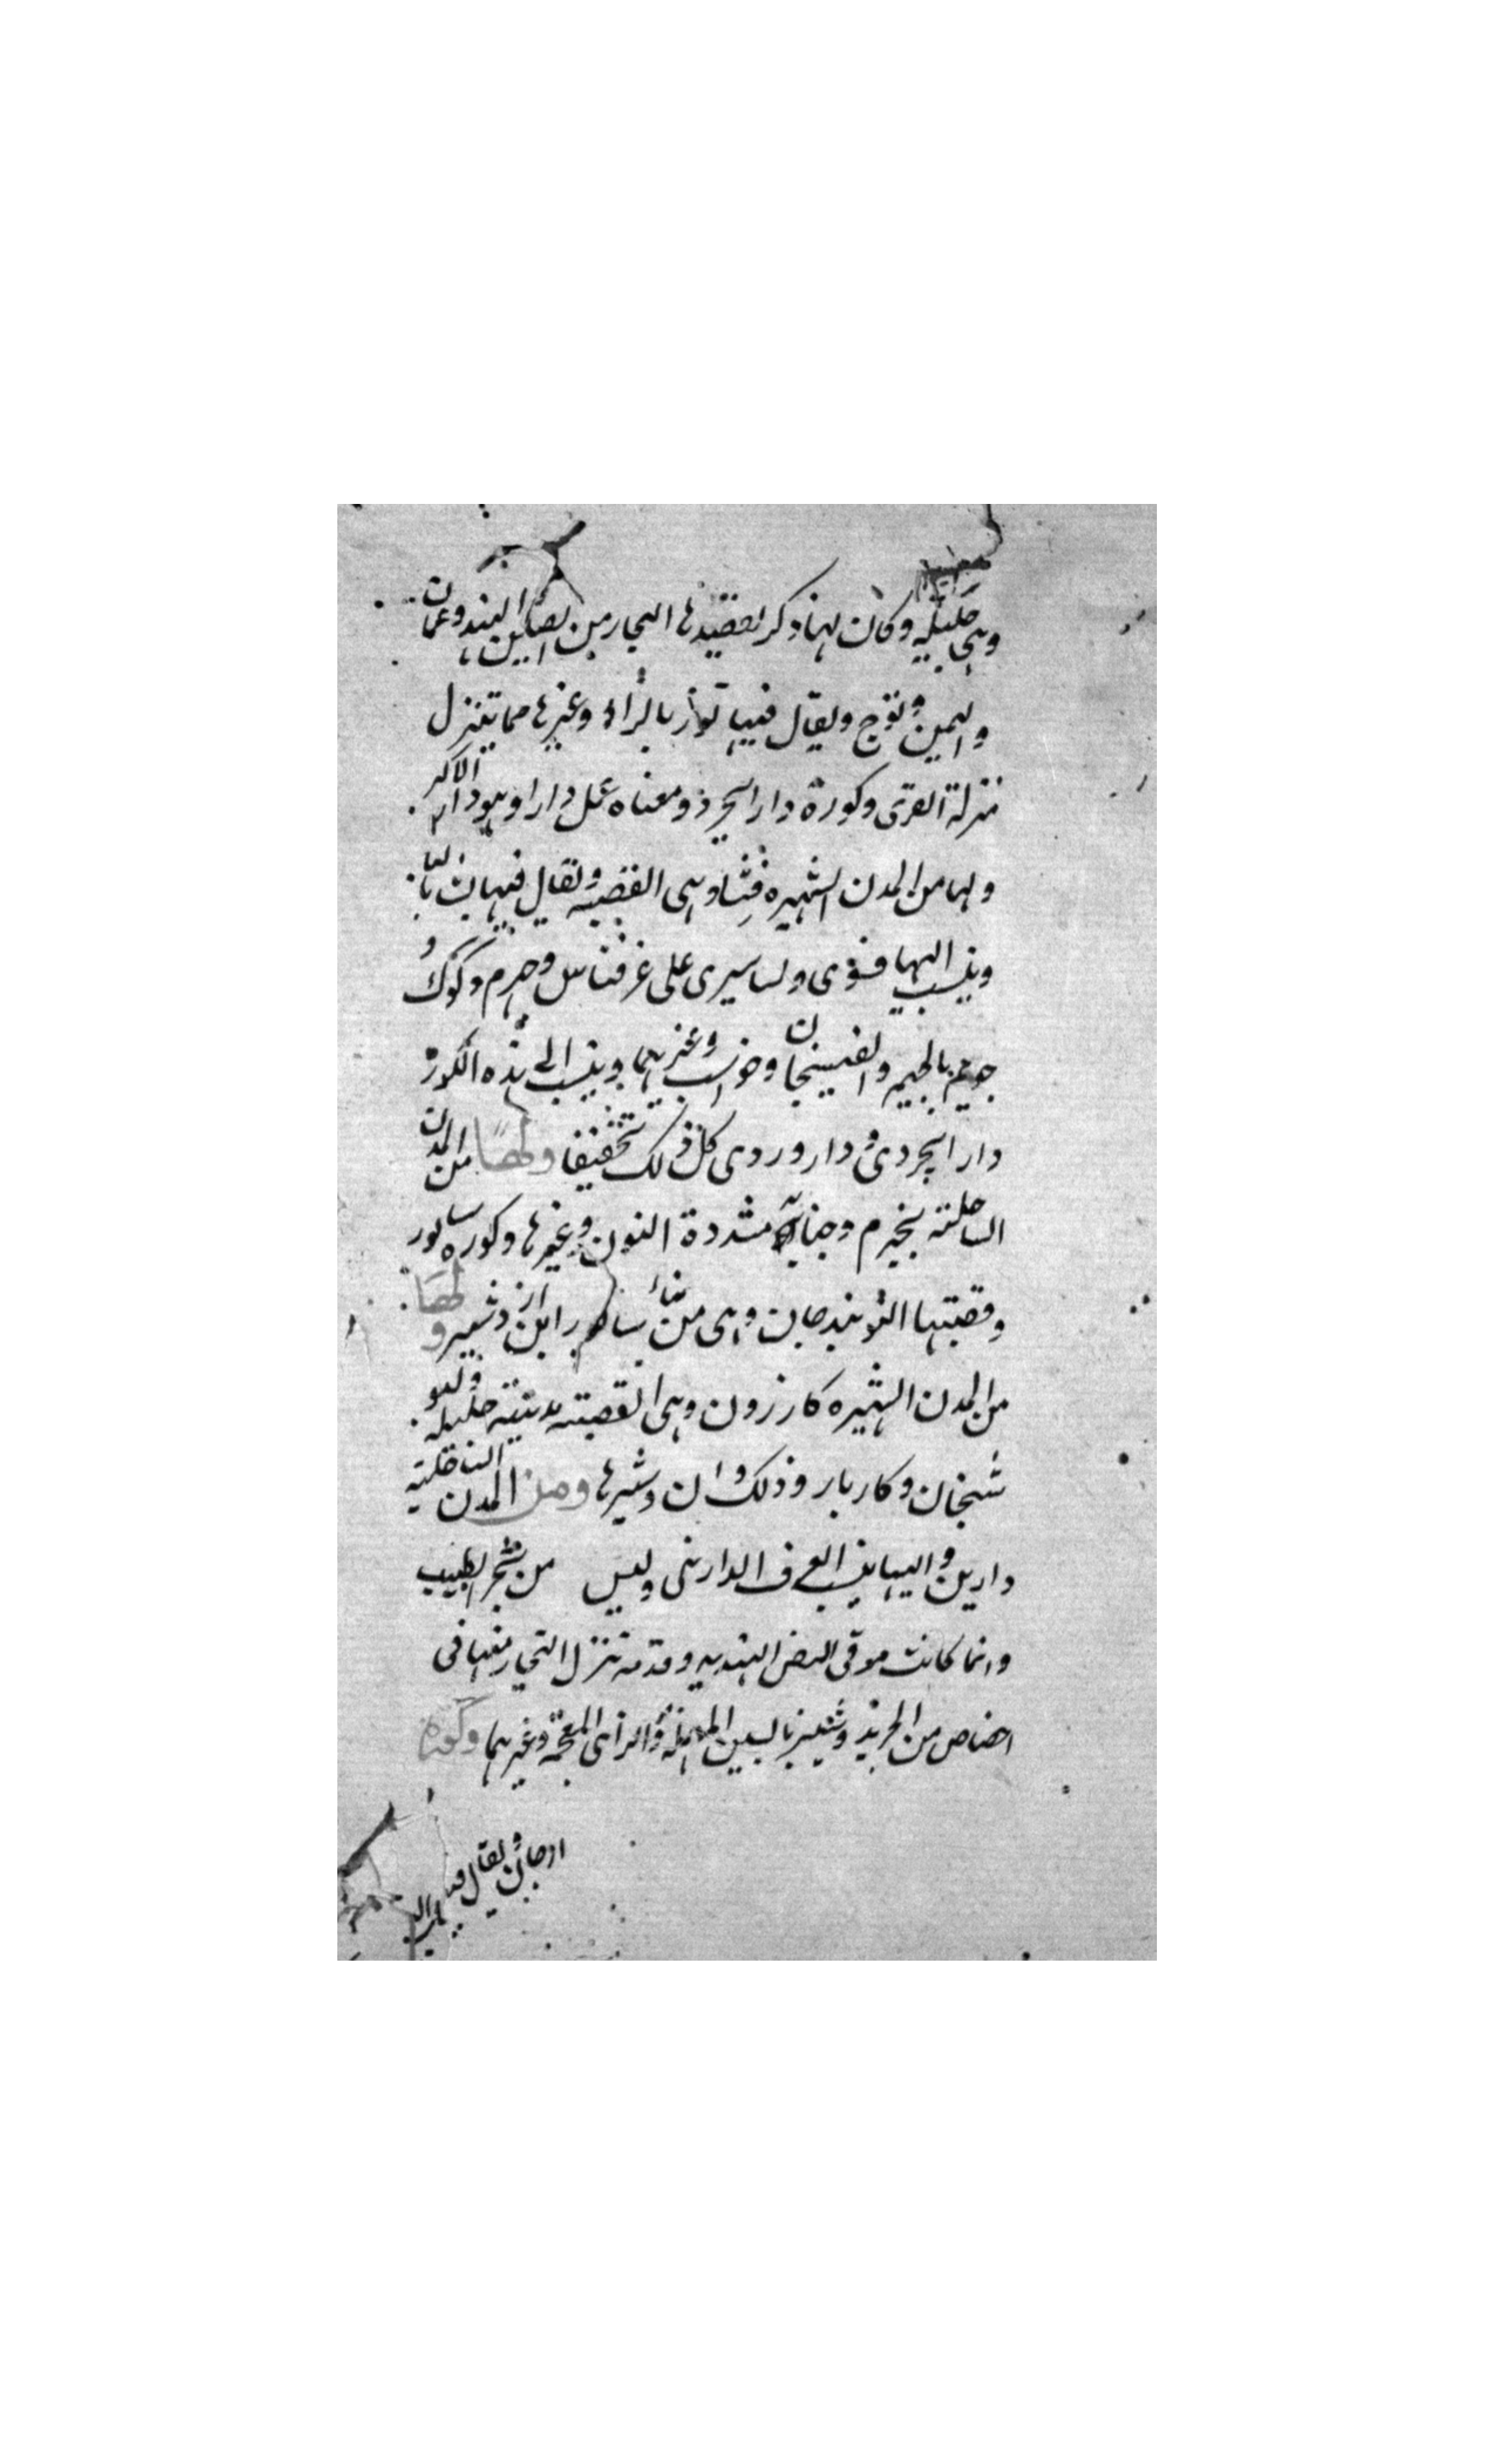 وهي جليله وكان لها ذكر يقصدها التجار من الصين الهند وعمان
واليمن وتوج ويقال فيها توز بالزاء وغيرها مما يتنزل
منزلة القرى وكورة دارابجرد ومعناه عمل دارا وهو دارا الاكبر
ولها من المدن الشهيره فسا وهى القصبه ويقال فيها بسا
وينسب اليها فسوى وبساسيرى على غير قياس وجهرم وكرك
جويم بالجيم والفسنجان وغيرهما وينسب الى هذه الكورة
دارابجردى و دراوردى كل ذلك تخفيفا ولها من المدن
الساحلية نجيرم وجنابة مشددة النون وغيرها وكوره سابور
وقصبتها النوبندجان وهى من بناء سابور ابن ازدشير ولها
من المدن الشهيره كازرون وهى القصبة مدينة جليله
شنجان وكاربار وذلك ان دشيرها ومن المدن الساحلية
دارين واليها ينسب العرف الدارنى وليس من شجر الطيب
وانما كانت الهنديه وقد تنزل التجار منها فى
اخصاص من الجريد وشينيز بالسين المهمله والزاى المعجمة وغيرهما وكورة
ارجان ويقال فيها